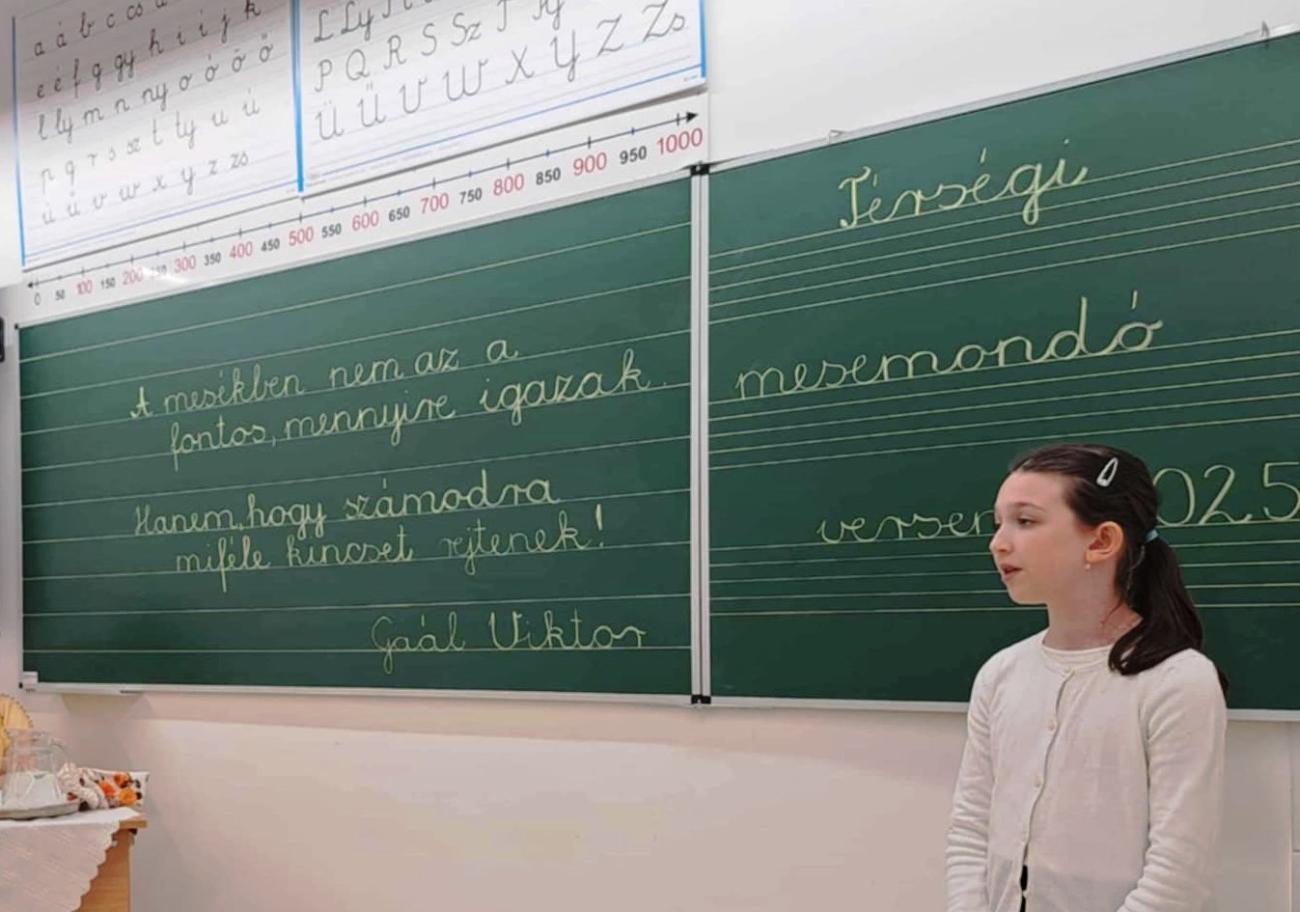 a á b c cs
e é f g gy h i í j k
l ly m n ny o ó ö ő
p q r s sz t ty u ú
ü ű v w x y z zs
L Ly
P Q R S Sz T Ty
Ü Ű V W X Y Z Zs
0 50 100 150 200 300 350 400 450 500 550 600 650 700 750 800 850 900 950 1000
A mesékben nem az a
fontos, mennyire igazak.
Hanem, hogy számodra
miféle kincset rejtenek!
Gaál Viktor
Térségi
mesemondó
versen 025